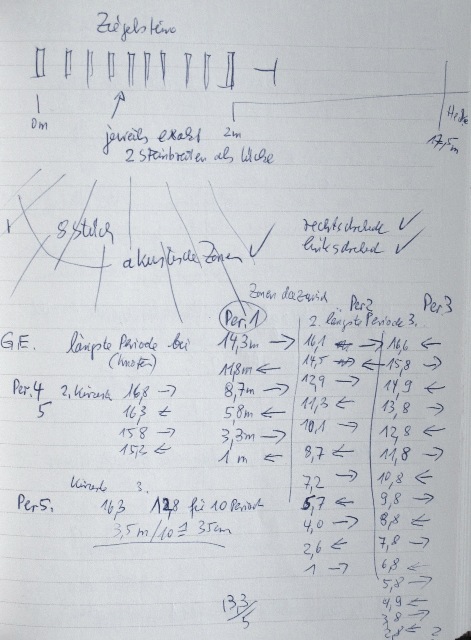 Ziegelsteine
0m
jeweils exakt
2 Steinbreiten als Lücke
2m
Hecke
17,5m
8 Stück
akustische Zonen ✓
rechtsdrehend ✓
linksdrehend ✓
G.E. längste Periode bei
(Knoten)
Per. 1
14,3m →
11,8m ←
8,7m →
5,8m ←
3,3m →
1 m ←
Per 2
2. längste Periode
16,1 ←
14,5
12,9 →
11,3 ←
10,1 →
8,7 ←
7,2 →
5,7 ←
4,0 →
2,6 ←
1 →
Per 3
3.
16,6 ←
15,8 →
14,9 ←
13,8 →
12,8 ←
11,8 →
10,8 ←
9,8 →
8,8 ←
7,8 →
6,8 ←
5,8 →
4,9 ←
3,8 →
2,8 ← 2
Per. 4
5
2. Kürzeste
16,8 →
16,3 ←
15,8 →
15,2 ←
Per 5.
Kürzeste 3.
16,3 12,8 für 10 Perioden
3,5 m/10 ≙ 35cm
13,3/5